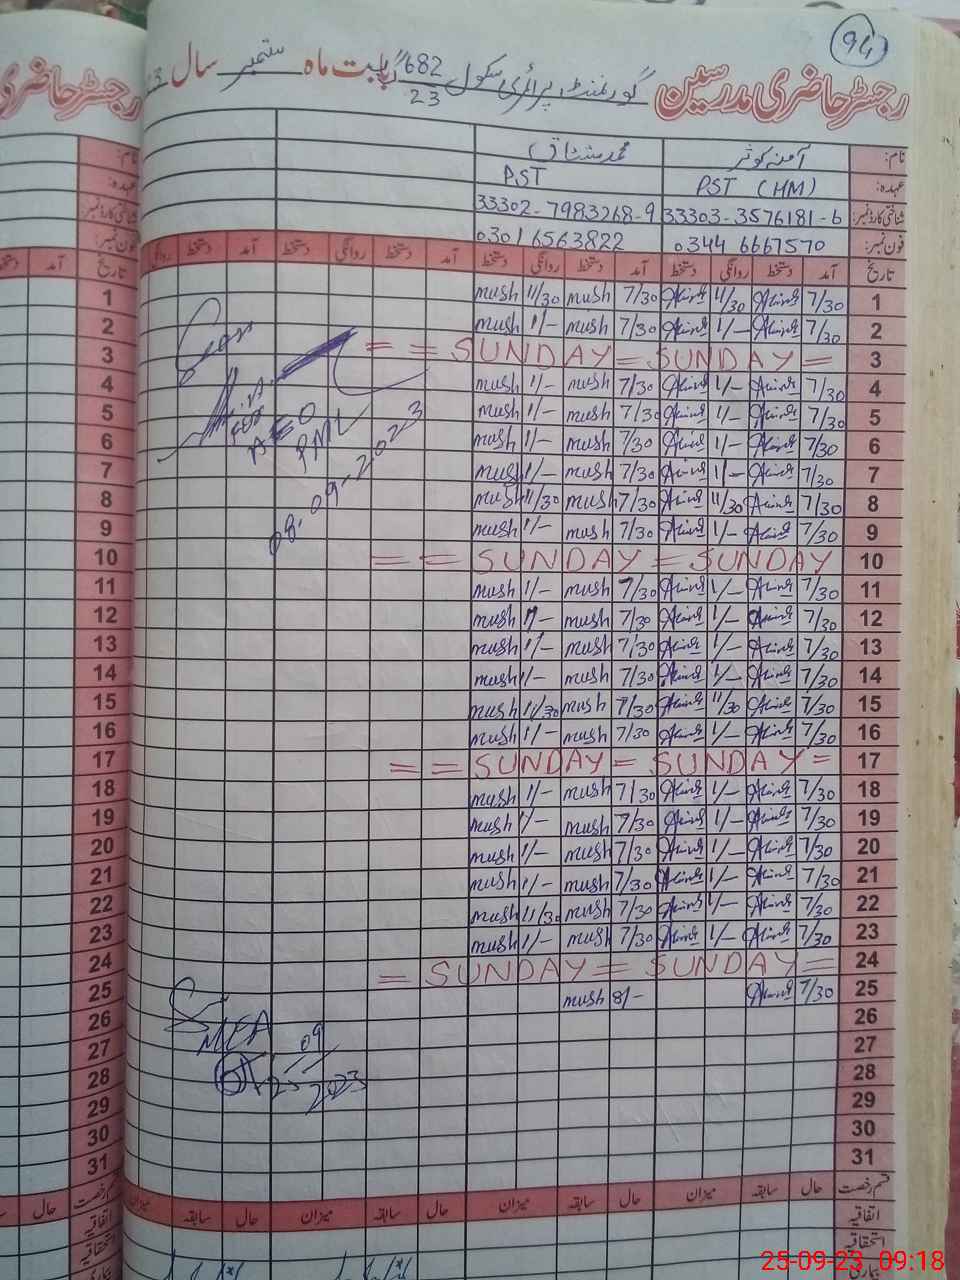 94
رجسٹر حاضری مدرسین گورنمنٹ پرائمری سکول 682/23 گ ب بابت ماہ ستمبر سال
نام: آمنہ کوثر محمد مشتاق
عہدہ: PST (HM) PST
شناختی کارڈ نمبر: 33303-3576181-6 33302-7983268-9
فون نمبر: 0344 6667570 03016563822
تاریخ آمد دستخط روانگی دستخط آمد دستخط روانگی دستخط آمد دستخط روانگی دستخط آمد دستخط روانگی
1 7/30 11/30 7/30 mush 11/30 mush
2 7/30 1/- 7/30 mush 1/- mush
3 = SUNDAY = SUNDAY = =
4 7/30 1/- 7/30 mush 1/- mush
5 7/30 1/- 7/30 mush 1/- mush
6 7/30 1/- 7/30 mush 1/- mush
7 7/30 1/- 7/30 mush 1/- mush
8 7/30 11/30 7/30 mush 11/30 mush
9 7/30 1/- 7/30 mush 1/- mush
10 SUNDAY = SUNDAY = =
11 7/30 1/- 7/30 mush 1/- mush
12 7/30 1/- 7/30 mush 1/- mush
13 7/30 1/- 7/30 mush 1/- mush
14 7/30 1/- 7/30 mush 1/- mush
15 7/30 11/30 7/30 mush 11/30 mush
16 7/30 1/- 7/30 mush 1/- mush
17 = SUNDAY = SUNDAY = =
18 7/30 1/- 7/30 mush 1/- mush
19 7/30 1/- 7/30 mush 1/- mush
20 7/30 1/- 7/30 mush 1/- mush
21 7/30 1/- 7/30 mush 1/- mush
22 7/30 1/- 7/30 mush 11/30 mush
23 7/30 1/- 7/30 mush 1/- mush
24 = SUNDAY = SUNDAY =
25 7/30 8/- mush
26
27
28
29
30
31
AEO
PML
08.09-2023
MEA
25/09/2023
قسم رخصت حال سابقہ میزان حال سابقہ میزان حال سابقہ میزان حال سابقہ میزان
اتفاقیہ
استحقاقیہ
بیماری
رجسٹر حاضری
25-09-23 09:18